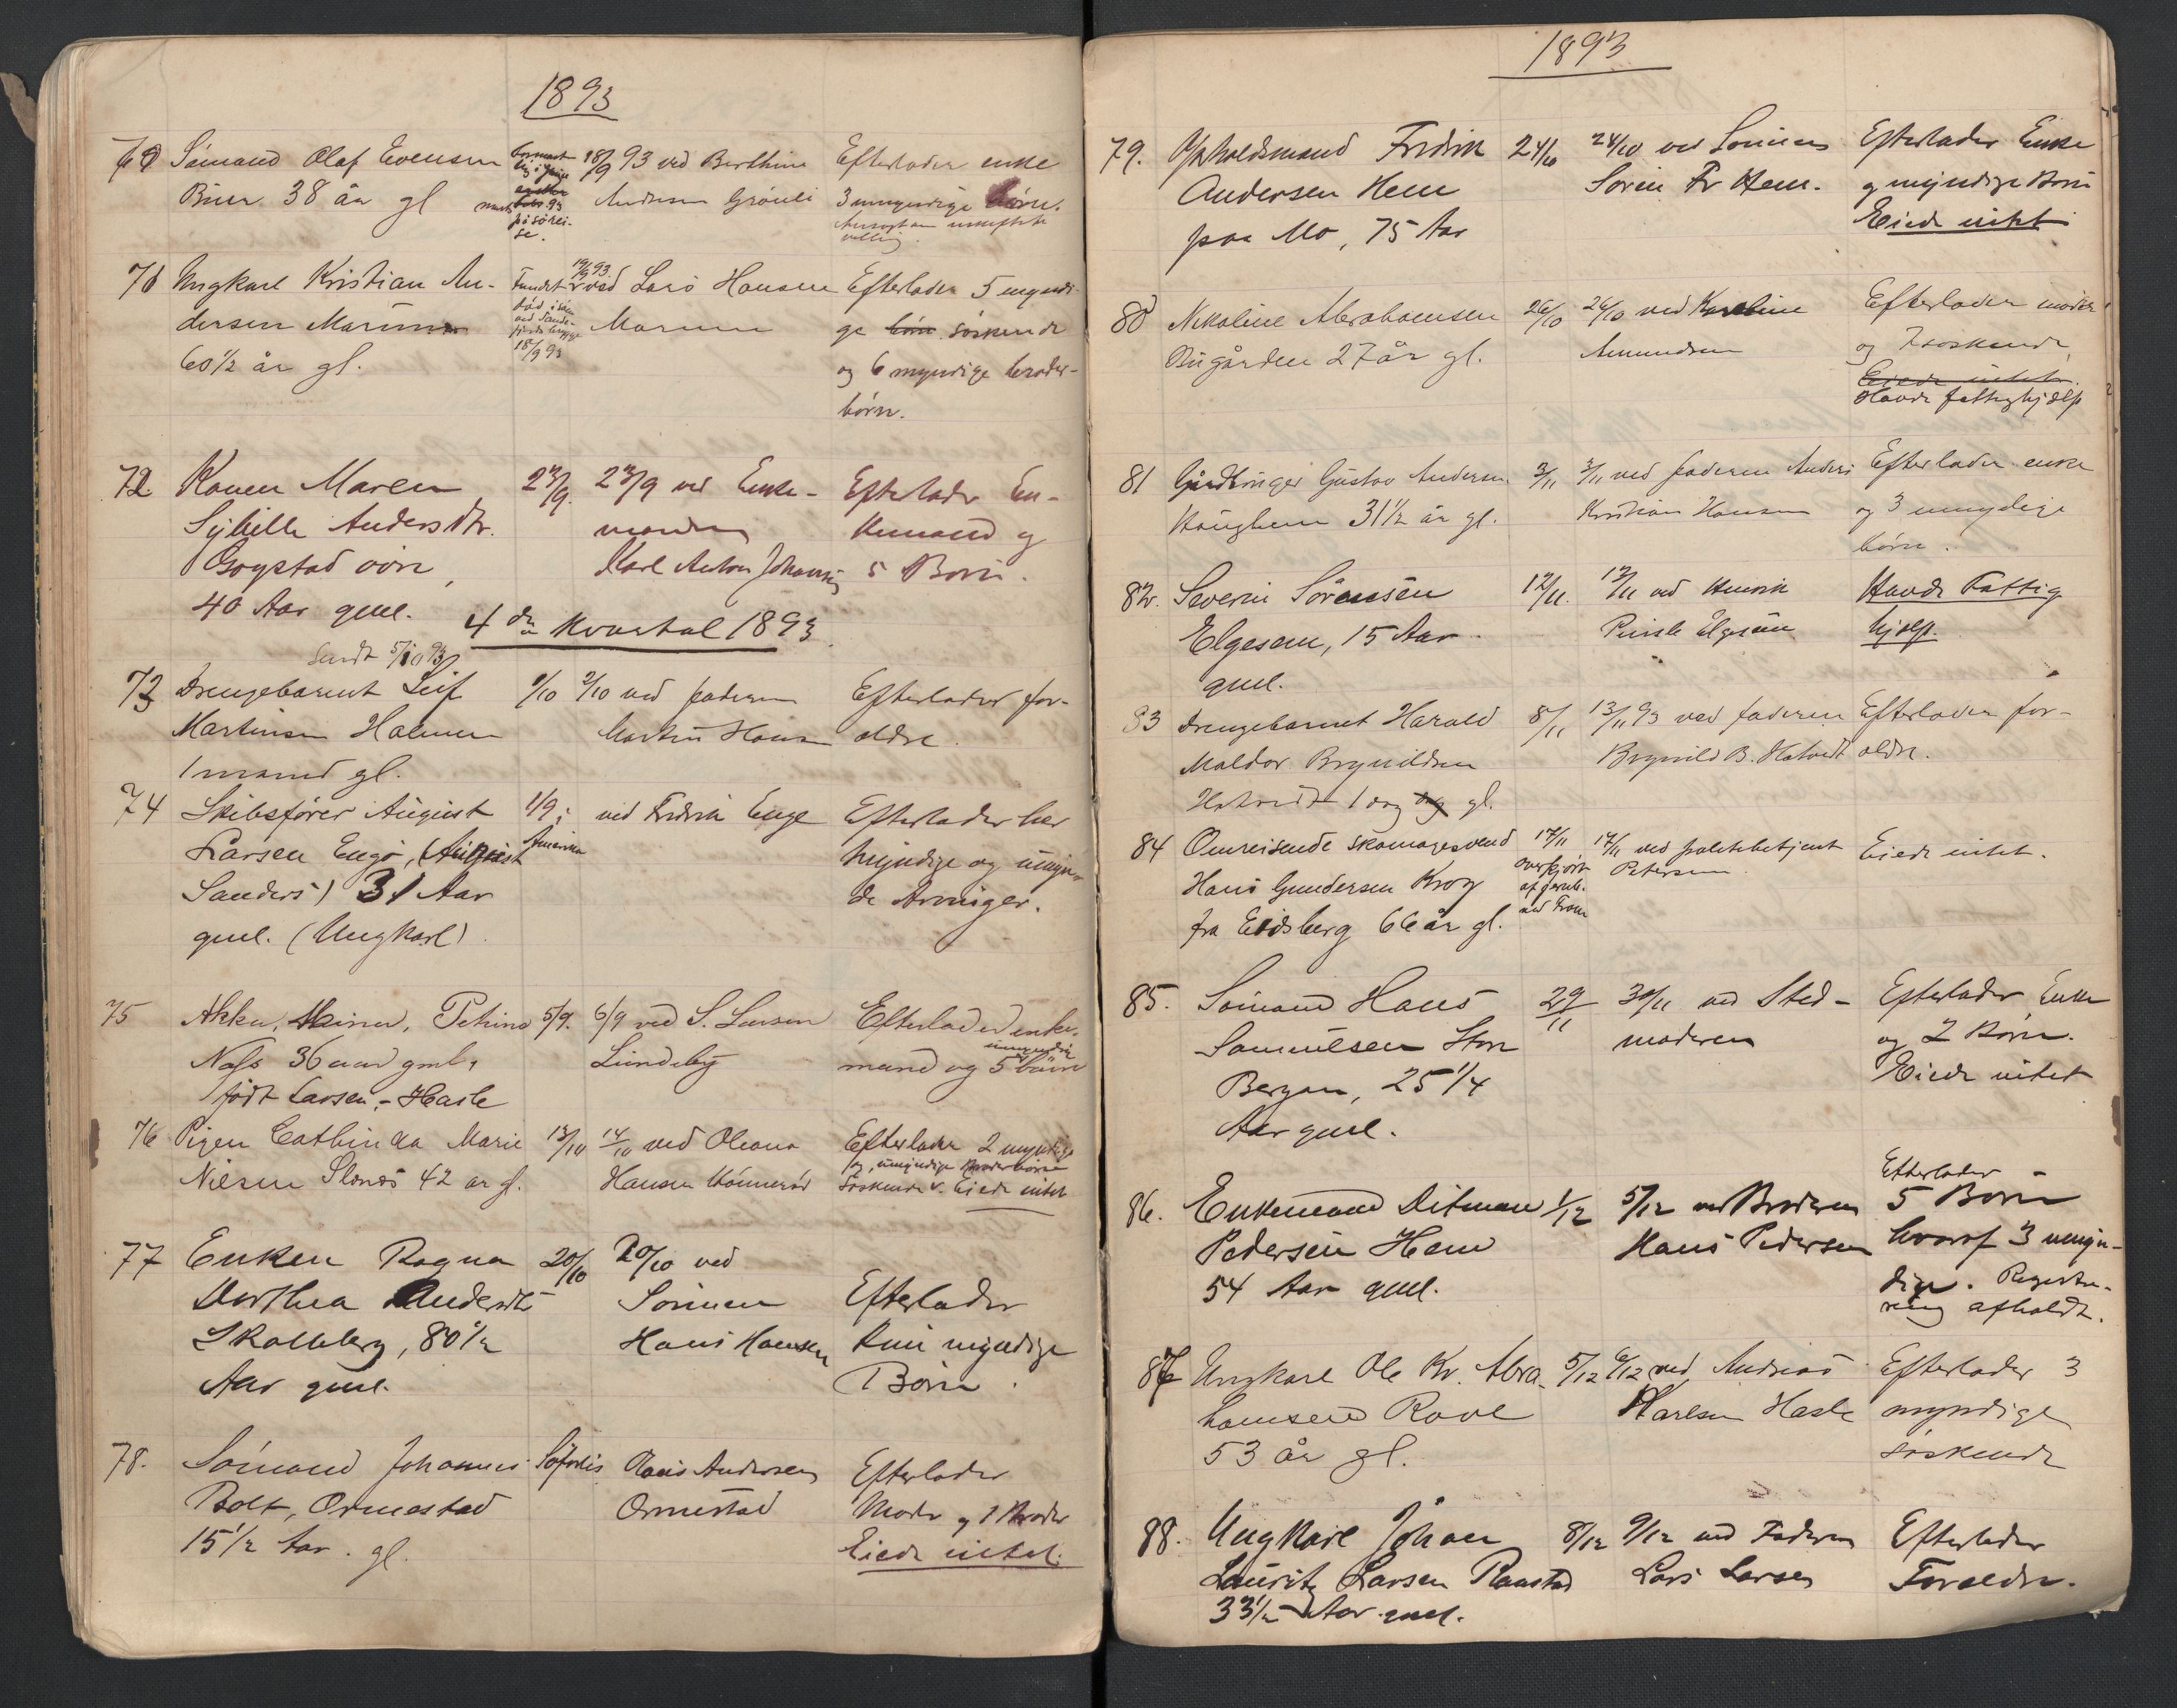 1893
69 Sömand Olaf Evensen
Buer 38 år gl
18/9 93 ved Berthine
Andersen Grönli
Efterlader enke
3 umyndige börn.
70 Ungkarl Kristian An-
dersen Marum
60 1/2 år gl.
Fundet
död i sjöen
ved Sande-
fjords brygge
18/9 93
19/9 93
ved Lars Hansen
Marum
Efterlader 5 myndi-
ge börn söskende
og 6 myndige broder-
börn.
72 Konen Maren
Sybille Andersdtr.
Gogstad övre,
40 Aar gml.
23/9.
23/9 ved Enke-
manden
Karl Anton Johansen
Efterlader En-
kemand og
5 Börn.
4de Kvartal 1893
Sendt 5/10 93
73 Drengebarnet Leif
Martinsen Holmen
1 maaned gl.
2/10 ved faderen
Martin Hansen
Efterlader for-
ældre.
74 Skibsförer August
Larsen Engö, (August
Sanders) 31 Aar
gml. (Ungkarl)
1/9 i
Amerika
ved Fredrik Enge
Efterlader her
Myndige og umyn-
de Arvinger.
75 Petrine
Næss 36 aar gml.
födt Larsen,- Hasle
5/9.
6/9 ved S. Larsen
Lundeby
Efterlader enke-
mand og 5 umyndige börn
76 Pigen Cathinka Marie
Nilsen Slonæs 42 ar gl.
13/10
14/10 ved Oleana
Hansen Könneröd
Efterlader 2 myndige
og umyndige Broderbörn
Söskende. Eiede intet
77 Enken Ragna
Dorthea Andersdtr
Skolleberg, 80 1/2
Aar gml.
20/10
20/10 ved
Sönnen
Hans Hansen
Efterlader
kun myndige
Börn.
78. Sömand Johannes
Bolt, Ormestad
15 1/2 Aar. gl.
Söforlis
Hans Andersen
Ormestad
Efterlader
Moder og 1 Broder
Eiede intet.
1893
79. Opholdsmand Fredrik
Andersen Hem
paa Mo, 75 Aar
24/10
24/10 ved Sönnen
Sören Fr Hem.
Efterlader Enke
og myndige Börn
Eiede intet
80 Nikoline Abrahamsen
Nugården 27 år gl.
26/10
26/10 ved Karoline
Amundsen
Efterlader moder
og 7 söskende
Eiede intet.
Havde fattighjælp
81 Gjördlinger Gustav Andersen
Haughem 31 1/2 år gl.
3/11
3/11 ved faderen Anders
Kristian Hansen
Efterlader enke
og 3 umyndige
börn.
82. Severin Sörensen
Elgesem, 15 Aar
gml.
12/11.
12/11 ved Henrik
Elgesem
Havde Fattig
hjelp.
83 Drengebarnet Harald
Maldor Brynildsen
Hotvedt 1 dag gl.
8/11
13/11 93 ved faderen
Brynild B. Hotvedt
Efterlader for-
ældre.
84 Omreisende skomagersvend
Hans Gundersen Krog
fra Eidsberg 66 år gl.
17/11
overkjört
af jernb.
ved Fram
17/11 ved politibetjent
Petersen
Eiede intet.
85. Sömand Hans
Samuelsen Store
Bergan, 25 1/4
Aar gml.
29/11
30/11 ved Sted-
moderen
Efterlader Enke
og 2 Börn.
Eiede intet
86. Enkemand Ditman
Pedersen Hem
54 Aar gml.
1/12
5/12 ved Broderen
Hans Pedersen
Efterlader
5 Börn
hvoraf 3 umyn-
dige. Registre-
ring afholdt.
87 Ungkarl Ole Kr. Abra-
hamsen Rove
53 år gl.
5/12
6/12 ved Andreas
Karlsen Hasle
Efterlader 3
myndige
söskende
88. Ungkarl Johan
Lauritz Larsen Raastad
33 1/2 Aar gml.
8/12
9/12 ved Faderen
Lars Larsen
Efterlader
Foreldre.